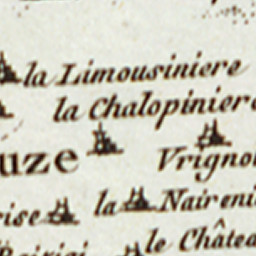 la Limousiniere
la Chalopiniere
uze Vrigno
rise la Naireni
le Châtea